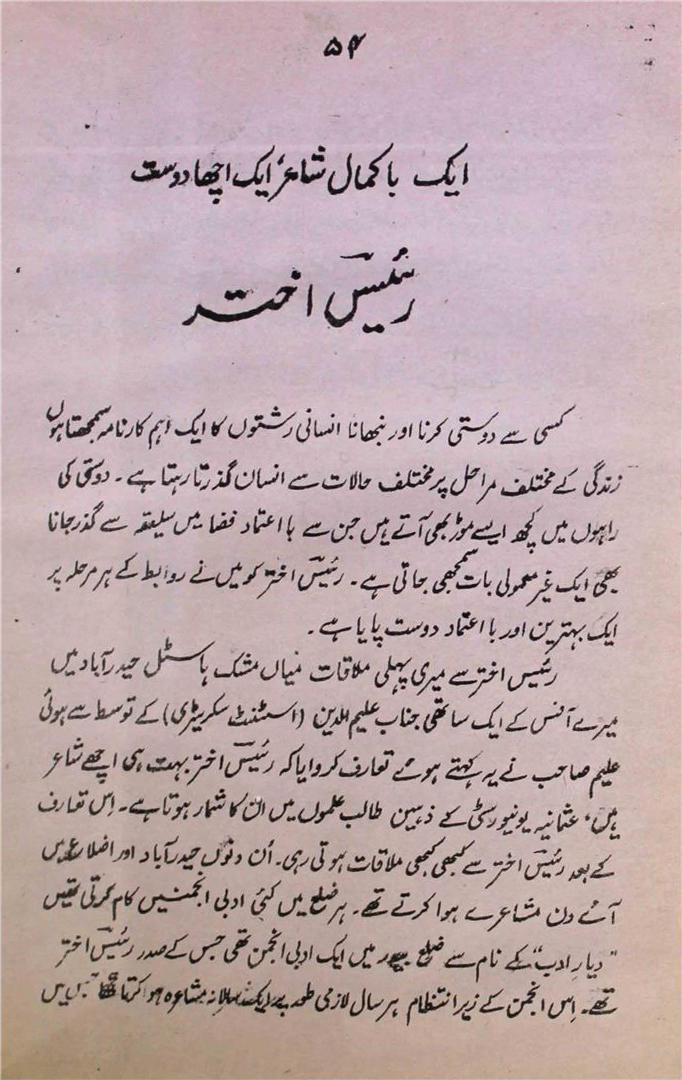 ۵۴
ایک باکمال شاعر، ایک اچھا دوست
رئیسؔ اختر
کسی سے دوستی کرنا اور نبھانا انسانی رشتوں کا ایک اہم کارنامہ سمجھتا ہوں
زندگی کے مختلف مراحل پر مختلف حالات سے انسان گذرتا رہتا ہے۔ دوستی کی
راہوں میں کچھ ایسے موڑ بھی آتے ہیں جن سے با اعتماد فضا میں سلیقہ سے گذر جانا
بھی ایک غیر معمولی بات سمجھی جاتی ہے۔ رئیسؔ اختر کو میں نے روابط کے ہر مرحلہ پر
ایک بہترین اور با اعتماد دوست پایا ہے۔
رئیسؔ اختر سے میری پہلی ملاقات میاں مشک ہاسٹل حیدرآباد میں
میرے آفس کے ایک ساتھی جناب علیم الدین (اسٹنٹ سکریٹری) کے توسط سے ہوئی
علیم صاحب نے یہ کہتے ہوئے تعارف کروایا کہ رئیسؔ اختر بہت ہی اچھے شاعر
ہیں، عثمانیہ یونیورسٹی کے ذہین طالب علموں میں ان کا شمار ہوتا ہے۔ اِس تعارف
کے بعد رئیسؔ اختر سے کبھی کبھی ملاقات ہوتی رہی۔ اُن دنوں حیدرآباد اور اضلاع میں
آئے دن مشاعرے ہوا کرتے تھے۔ ہر ضلع میں کئی ادبی انجمنیں کام کرتی تھیں
"دیارِ ادب" کے نام سے ضلع میں ایک ادبی انجمن تھی جس کے صدر رئیسؔ اختر
تھے۔ اِس انجمن کے زیر انتظام ہر سال لازمی طور پر ایک سالانہ مشاعرہ ہوا کرتا تھا جس میں